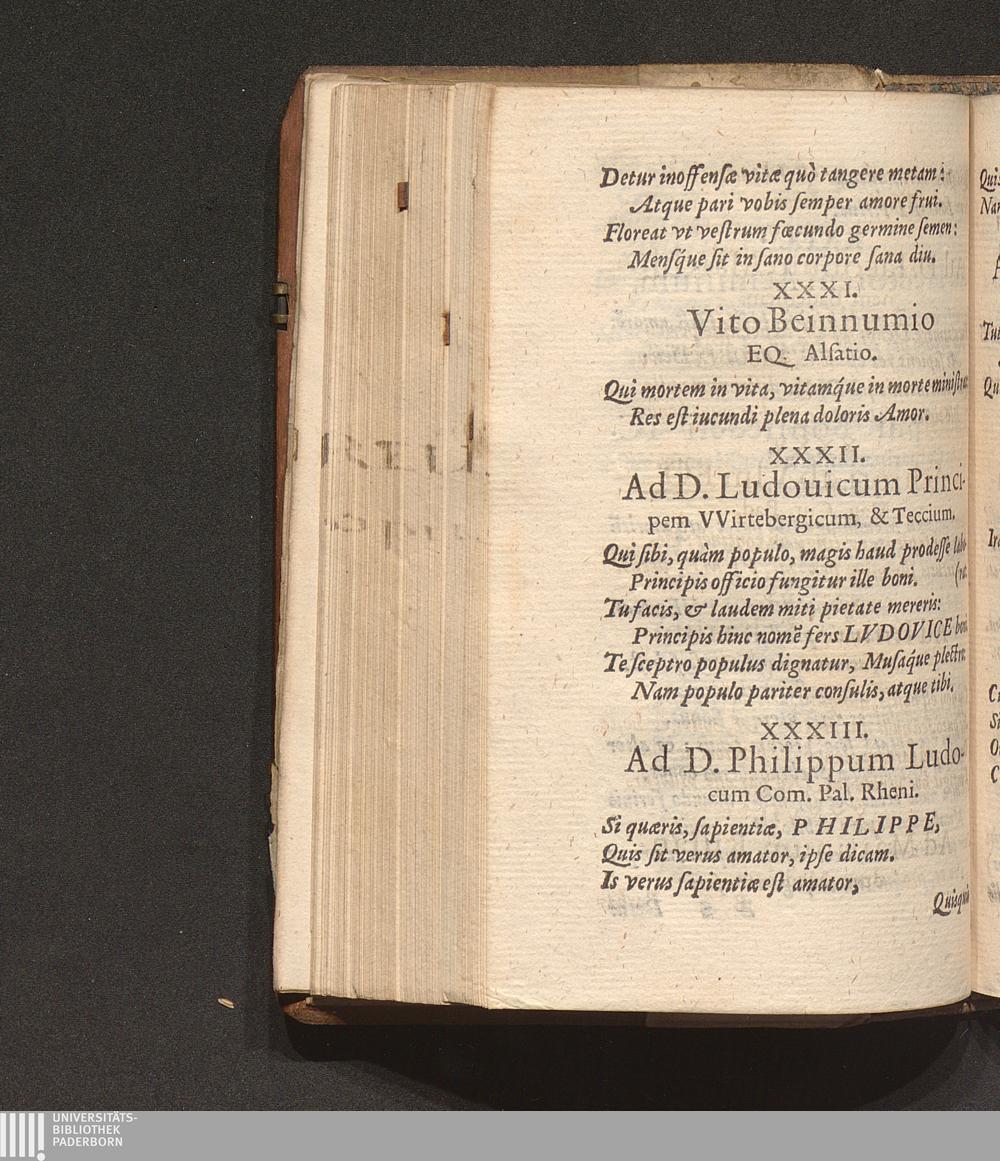 Detur inoffensæ vitæ quò tangere metam:
Atque pari vobis semper amore frui.
Floreat vt vestrum fœcundo germine semen:
Mensq́ue sit in sano corpore sana diu.
XXXI.
Vito Beinnumio
EQ. Alsatio.
Qui mortem in vita, vitamq́ue in morte
Res est iucundi plena doloris Amor.
XXXII.
Ad D. Ludouicum Princi-
pem VVirtebergicum, & Teccium.
Qui sibi, quàm populo, magis haud prodesse labo-
Principis officio fungitur ille boni. (re
Tu facis, & laudem miti pietate mereris:
Principis hinc nomẽ fers LVDOVICE boni
Te sceptro populus dignatur, Musaq́ue plectro:
Nam populo pariter consulis, atque tibi.
XXXIII.
Ad D. Philippum Ludo-
cum Com. Pal. Rheni.
Si quæris, sapientiæ, PHILIPPE,
Quis sit verus amator, ipse dicam.
Is verus sapientiæ est amator,
Quisquis
UNIVERSITÄTS-
BIBLIOTHEK
PADERBORN